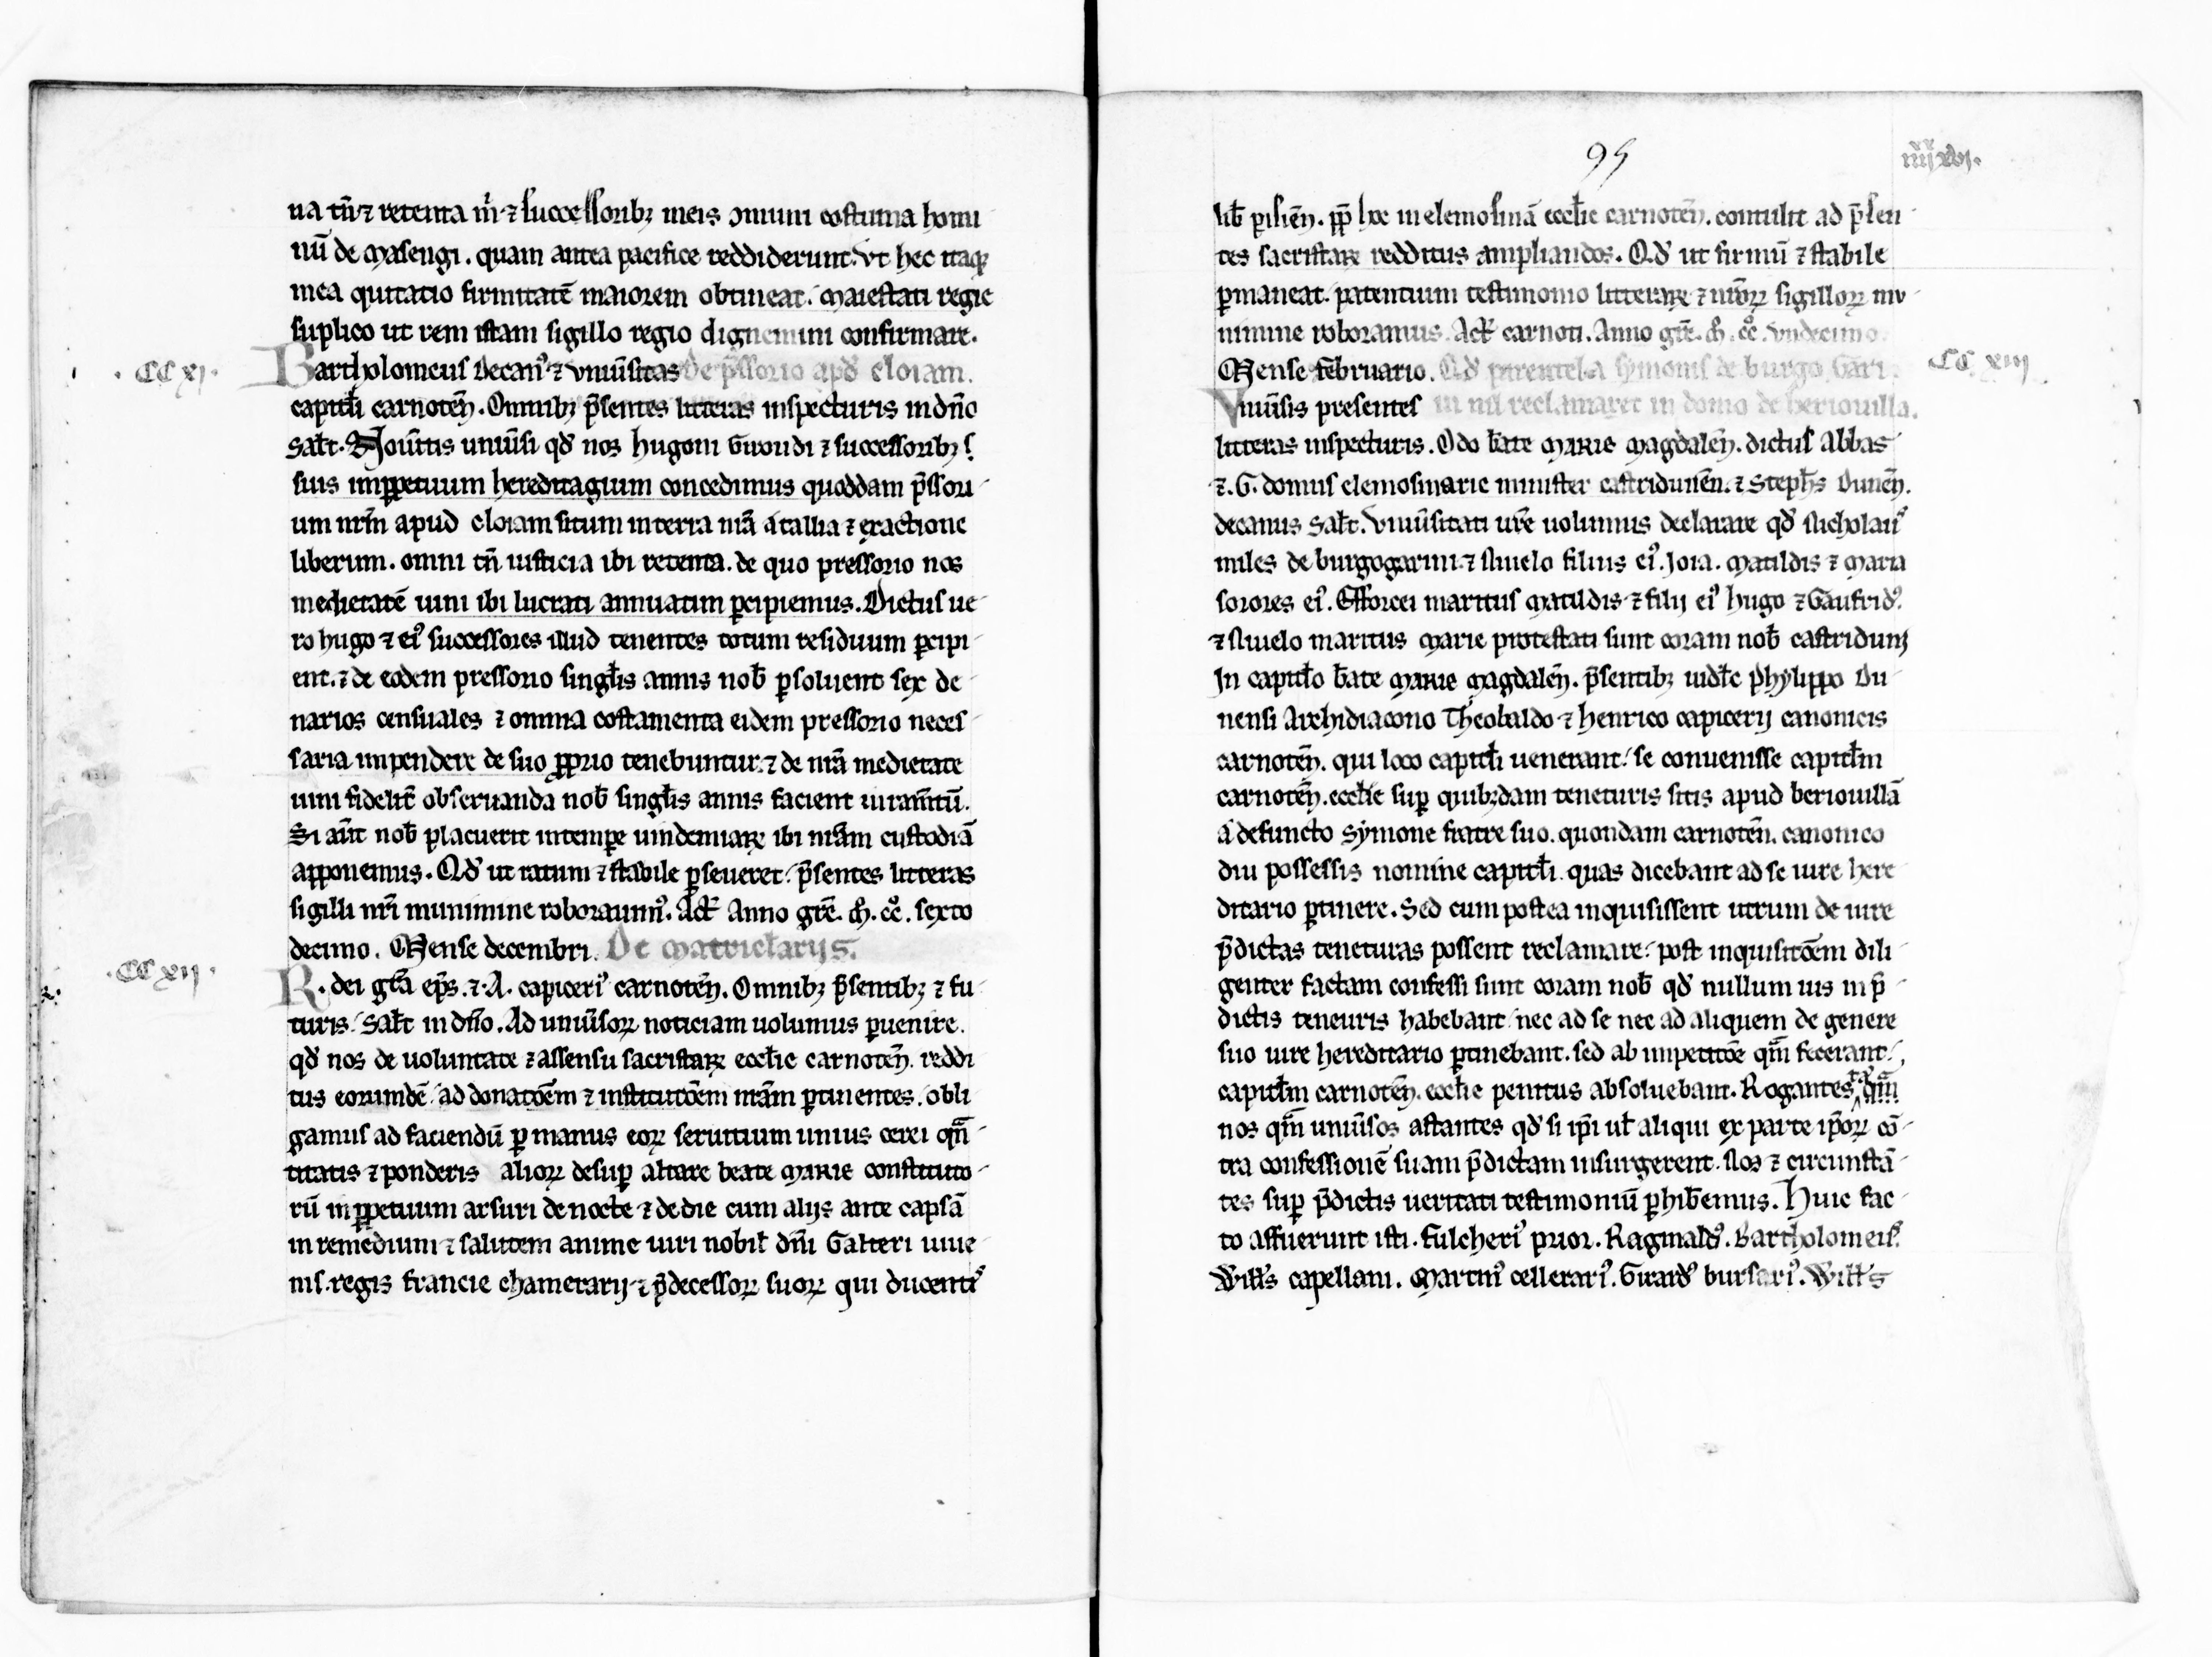 na tñ ⁊ retenta m̃ ⁊ successoribꝫ meis omnium costuma homi
nũ de masengi. quam antea pacifice reddiderunt. vt hec itaqꝫ
mea quitatio firmitatẽ maiorem obtineat. maiestati regie
suplico ut rem istam sigillo regio dignemini confirmare.
· CC xj ·
Bartholomeus decanꝰ ⁊ vniũsitas De p̃ssorio apđ cloiam.
capitłi carnoteñ. Omnibꝫ p̃sentes litteras inspecturis in dño
sałt. Noũitis uniũsi qđ nos hugoni Girondi ⁊ successoribꝫ
suis imꝑpetuum hereditagium concedimus quoddam p̃ssori
um nr̃m apud cloiam situm in terra nr̃a a tallia ⁊ exactione
liberum. omni tñ iusticia ibi retenta. de quo pressorio nos
medietatẽ uini ibi lucrati annuatim ꝑcipiemus. Dictus ue
ro hugo ⁊ eiꝰ successores illud tenentes totum residuum ꝑcipi
ent. ⁊ de eodem pressorio singłis annis nob̃ ꝑsoluent sex de
narios censuales ⁊ omnia costamenta eidem pressorio neces
saria inpendere de suo ꝓprio tenebuntur. ⁊ de nr̃a medietate
uini fidelit̃ obseruanda nob̃ singłis annis facient iuram̃tũ.
Si aũt nob̃ placuerit in tempore uindemiaꝝ ibi nr̃am custodiã
apponemus. Qđ ut ratum ⁊ stabile ꝑseueret. p̃sentes litteras
sigilli nr̃i munimine roborauimꝰ. Act̃ Anno gr̃e. m̃. cc̃. sexto
decimo. Mense decembri. De matriclarijs.
· CC xij ·
R. dei gr̃a ep̃s. ⁊. A. capiceriꝰ carnoteñ. Omnibꝫ p̃sentibꝫ ⁊ fu
turis. sałt in dño. Ad uniũsoꝝ noticiam uolumus ꝑuenire.
qđ nos de uoluntate ⁊ assensu sacristaꝝ eccłie carnoteñ. reddi
tus eorumdẽ ad donatõem ⁊ institutõem nr̃am ꝑtinentes. obli
gamus ad faciendũ ꝑ manus eoꝝ seruitium unius cerei qñ
titatis ⁊ ponderis alioꝝ desuꝑ altare beate marie constituto
rũ in ꝑpetuum arsuri de nocte ⁊ de die cum alijs ante capsã
in remedium ⁊ salutem anime uiri nobil̃ dñi Galteri iuue
nis. regis francie chamerarij ⁊ p̃decessoꝝ suoꝝ qui ducentꝰ
95
iiij xvj.
lib̃ ꝑisieñ. ꝓp̃ hoc in elemosinã eccłie carnoteñ. contulit ad p̃sen
tes sacristaꝝ redditus ampliandos. Qđ ut firmũ ⁊ stabile
ꝑmaneat. patentium testimonio litteraꝝ ⁊ nr̃oꝝ sigilloꝝ mu
nimine roboramus. Act̃ carnoti. Anno gr̃e. m̃. cc̃. vndecimo.
Mense februario. Qđ parentela symonis de burgo Gari
CC xiij
Vniũsis presentes ni nił reclamaret in domo de beriouilla.
litteras inspecturis. Odo b̃ate marie magdaleñ. dictus Abbas
⁊. G. domus elemosinarie minister castriduneñ. ⁊ Steph̃s Duneñ.
decanus sałt. vniũsitati ur̃e uolumus declarare qđ Nicholauꝰ
miles de burgogarini. ⁊ Niuelo filius eiꝰ. Joia. Matildis ⁊ Maria
sorores eiꝰ. Efforcei maritus Matildis ⁊ filij eiꝰ hugo ⁊ Gaufridꝰ.
⁊ Niuelo maritus marie protestati sunt coram nob̃ castriduni
In capitło b̃ate marie magdaleñ. p̃sentibꝫ uidłc phylippo Du
nensi Archidiacono Theobaldo ⁊ henrico capicerij canonicis
carnoteñ. qui loco capitłi uenerant. se conuenisse capitłm
carnoteñ. eccłie suꝑ quibꝫdam teneturis sitis apud beriouillã
a defuncto symone fratre suo. quondam carnoteñ. canonico
diu possessis nomine capitłi. quas dicebant ad se iure here
ditario ꝑtinere. Sed cum postea inquisissent utrum de iure
p̃dictas teneturas possent reclamare. post inquisitõem dili
genter factam confessi sunt coram nob̃ qđ nullum ius in p̃
dictis teneuris habebant. nec ad se nec ad aliquem de genere
suo iure hereditario ꝑtinebant. sed ab inpetitõe qm̃ fecerant.
capitłm carnoteñ. eccłie penitus absoluebant. Rogantes tã
nos qm̃ uniũsos astantes qđ si ip̃i ut̃ aliqui ex parte ip̃oꝝ cõ
tra confessionẽ suam p̃dictam insurgerent. Nos ⁊ circunstã
tes suꝑ p̃dictis ueritati testimoniũ ꝑhib̃emus. Huic fac
to affuerunt isti. fulcheriꝰ prior. Raginaldꝰ. Bartholomeiꝰ.
Will̃s capellani. Martinꝰ cellerariꝰ. Girardꝰ bursariꝰ. Will̃s